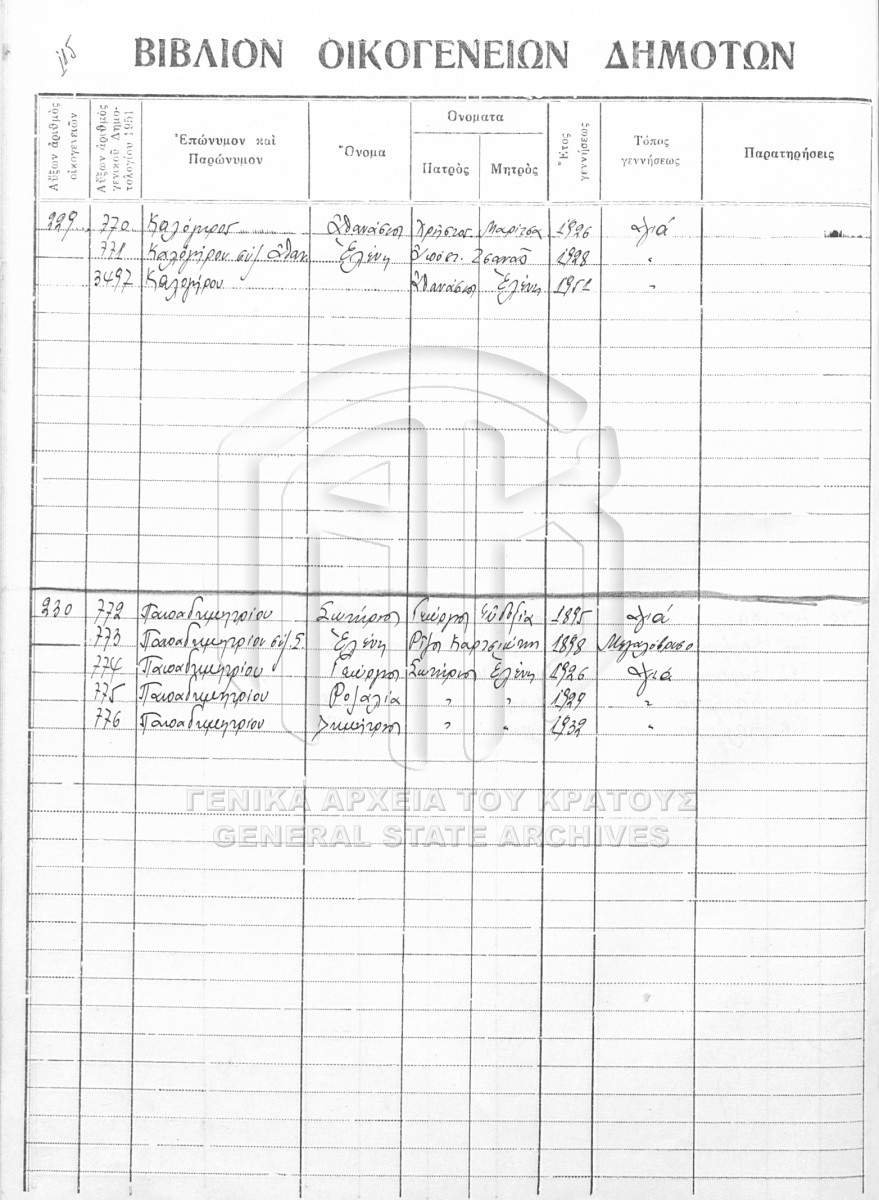 115
ΒΙΒΛΙΟΝ ΟΙΚΟΓΕΝΕΙΩΝ ΔΗΜΟΤΩΝ
Αὔξων ἀριθμὸς οἰκογενειῶν
Αὔξων ἀριθμὸς γενικοῦ Δημοτολογίου 1951
Ἐπώνυμον καὶ Παρώνυμον
Ὄνομα
Ὀνόματα
Πατρὸς Μητρὸς
Ἔτος γεννήσεως
Τόπος γεννήσεως
Παρατηρήσεις
229 770 Καλόγηρος Ἀθανάσιος Χρῆστος Μαρίτσα 1926 Ἁγιά
771 Καλογήρου συζ Ἀθαν Ἑλένη Ἀποστ. Τσανᾶ 1928 "
3497 Καλογήρου Ἀθανάσιος Ἑλένη 1951 "
230 772 Παπαδημητρίου Σωτήριος Γεώργιος Εὐδοξία 1895 Ἁγιά
773 Παπαδημητρίου συζ. Σ. Ἑλένη Ρίζος 1898 Μεγαλόβρυσο
774 Παπαδημητρίου Γεώργιος Σωτήριος Ἑλένη 1926 Ἁγιά
775 Παπαδημητρίου Ροζαλία " " 1929 "
776 Παπαδημητρίου Δημήτριος " " 1932 "
ΓΕΝΙΚΑ ΑΡΧΕΙΑ ΤΟΥ ΚΡΑΤΟΥΣ
GENERAL STATE ARCHIVES